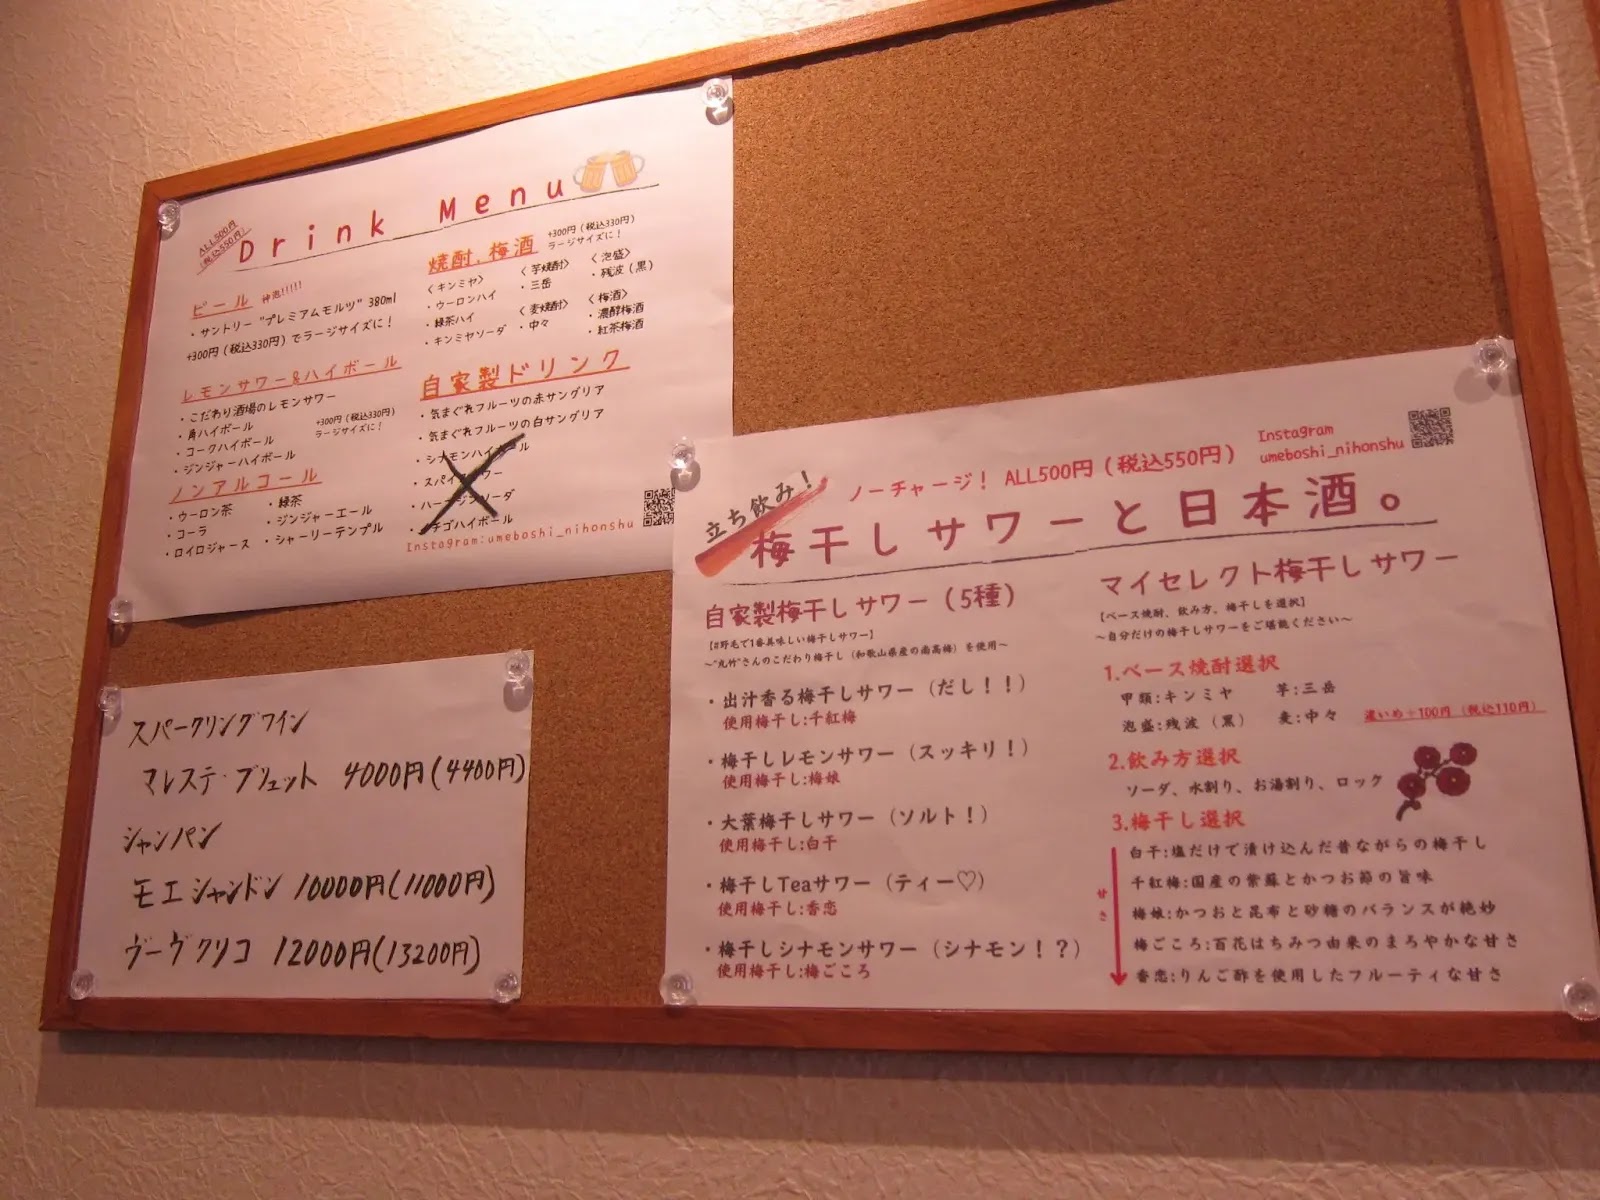 ALL500円
(税込550円)
Drink Menu
ビール 神泡!!!!!
・サントリー "プレミアムモルツ" 380ml
+300円 (税込330円) でラージサイズに！
レモンサワー&ハイボール
・こだわり酒場のレモンサワー
・角ハイボール
・コークハイボール
・ジンジャーハイボール
+300円 (税込330円)
ラージサイズに！
ノンアルコール
・ウーロン茶
・コーラ
・ロイロジャース
・緑茶
・ジンジャーエール
・シャーリーテンプル
焼酎，梅酒
+300円 (税込330円)
ラージサイズに！
〈キンミヤ〉
・ウーロンハイ
・緑茶ハイ
・キンミヤソーダ
〈芋焼酎〉
・三岳
〈麦焼酎〉
・中々
〈泡盛〉
・残波 (黒)
〈梅酒〉
・濃醇梅酒
・紅茶梅酒
自家製ドリンク
・気まぐれフルーツの赤サングリア
・気まぐれフルーツの白サングリア
・シナモンハイボール
Instagram:umeboshi_nihonshu
スパークリングワイン
マレステ・ブリュット 4000円(4400円)
シャンパン
モエシャンドン 10000円(11000円)
ヴーヴクリコ 12000円(13200円)
立ち飲み！
ノーチャージ！ ALL500円 (税込550円)
Instagram
umeboshi_nihonshu
梅干しサワーと日本酒。
自家製梅干しサワー (5種)
【#野毛で1番美味しい梅干しサワー】
〜"丸竹"さんのこだわり梅干し (和歌山県産の南高梅) を使用〜
・出汁香る梅干しサワー (だし！！)
使用梅干し:千紅梅
・梅干しレモンサワー (スッキリ！)
使用梅干し:梅娘
・大葉梅干しサワー (ソルト！)
使用梅干し:白干
・梅干しTeaサワー (ティー♡)
使用梅干し:香恋
・梅干しシナモンサワー (シナモン！？)
使用梅干し:梅ごころ
マイセレクト梅干しサワー
【ベース焼酎、飲み方、梅干しを選択】
〜自分だけの梅干しサワーをご堪能ください〜
1.ベース焼酎選択
甲類:キンミヤ 芋:三岳
泡盛:残波 (黒) 麦:中々 濃いめ+100円 (税込110円)
2.飲み方選択
ソーダ、水割り、お湯割り、ロック
3.梅干し選択
甘さ
白干:塩だけで漬け込んだ昔ながらの梅干し
千紅梅:国産の紫蘇とかつお節の旨味
梅娘:かつおと昆布と砂糖のバランスが絶妙
梅ごころ:百花はちみつ由来のまろやかな甘さ
香恋:りんご酢を使用したフルーティな甘さ